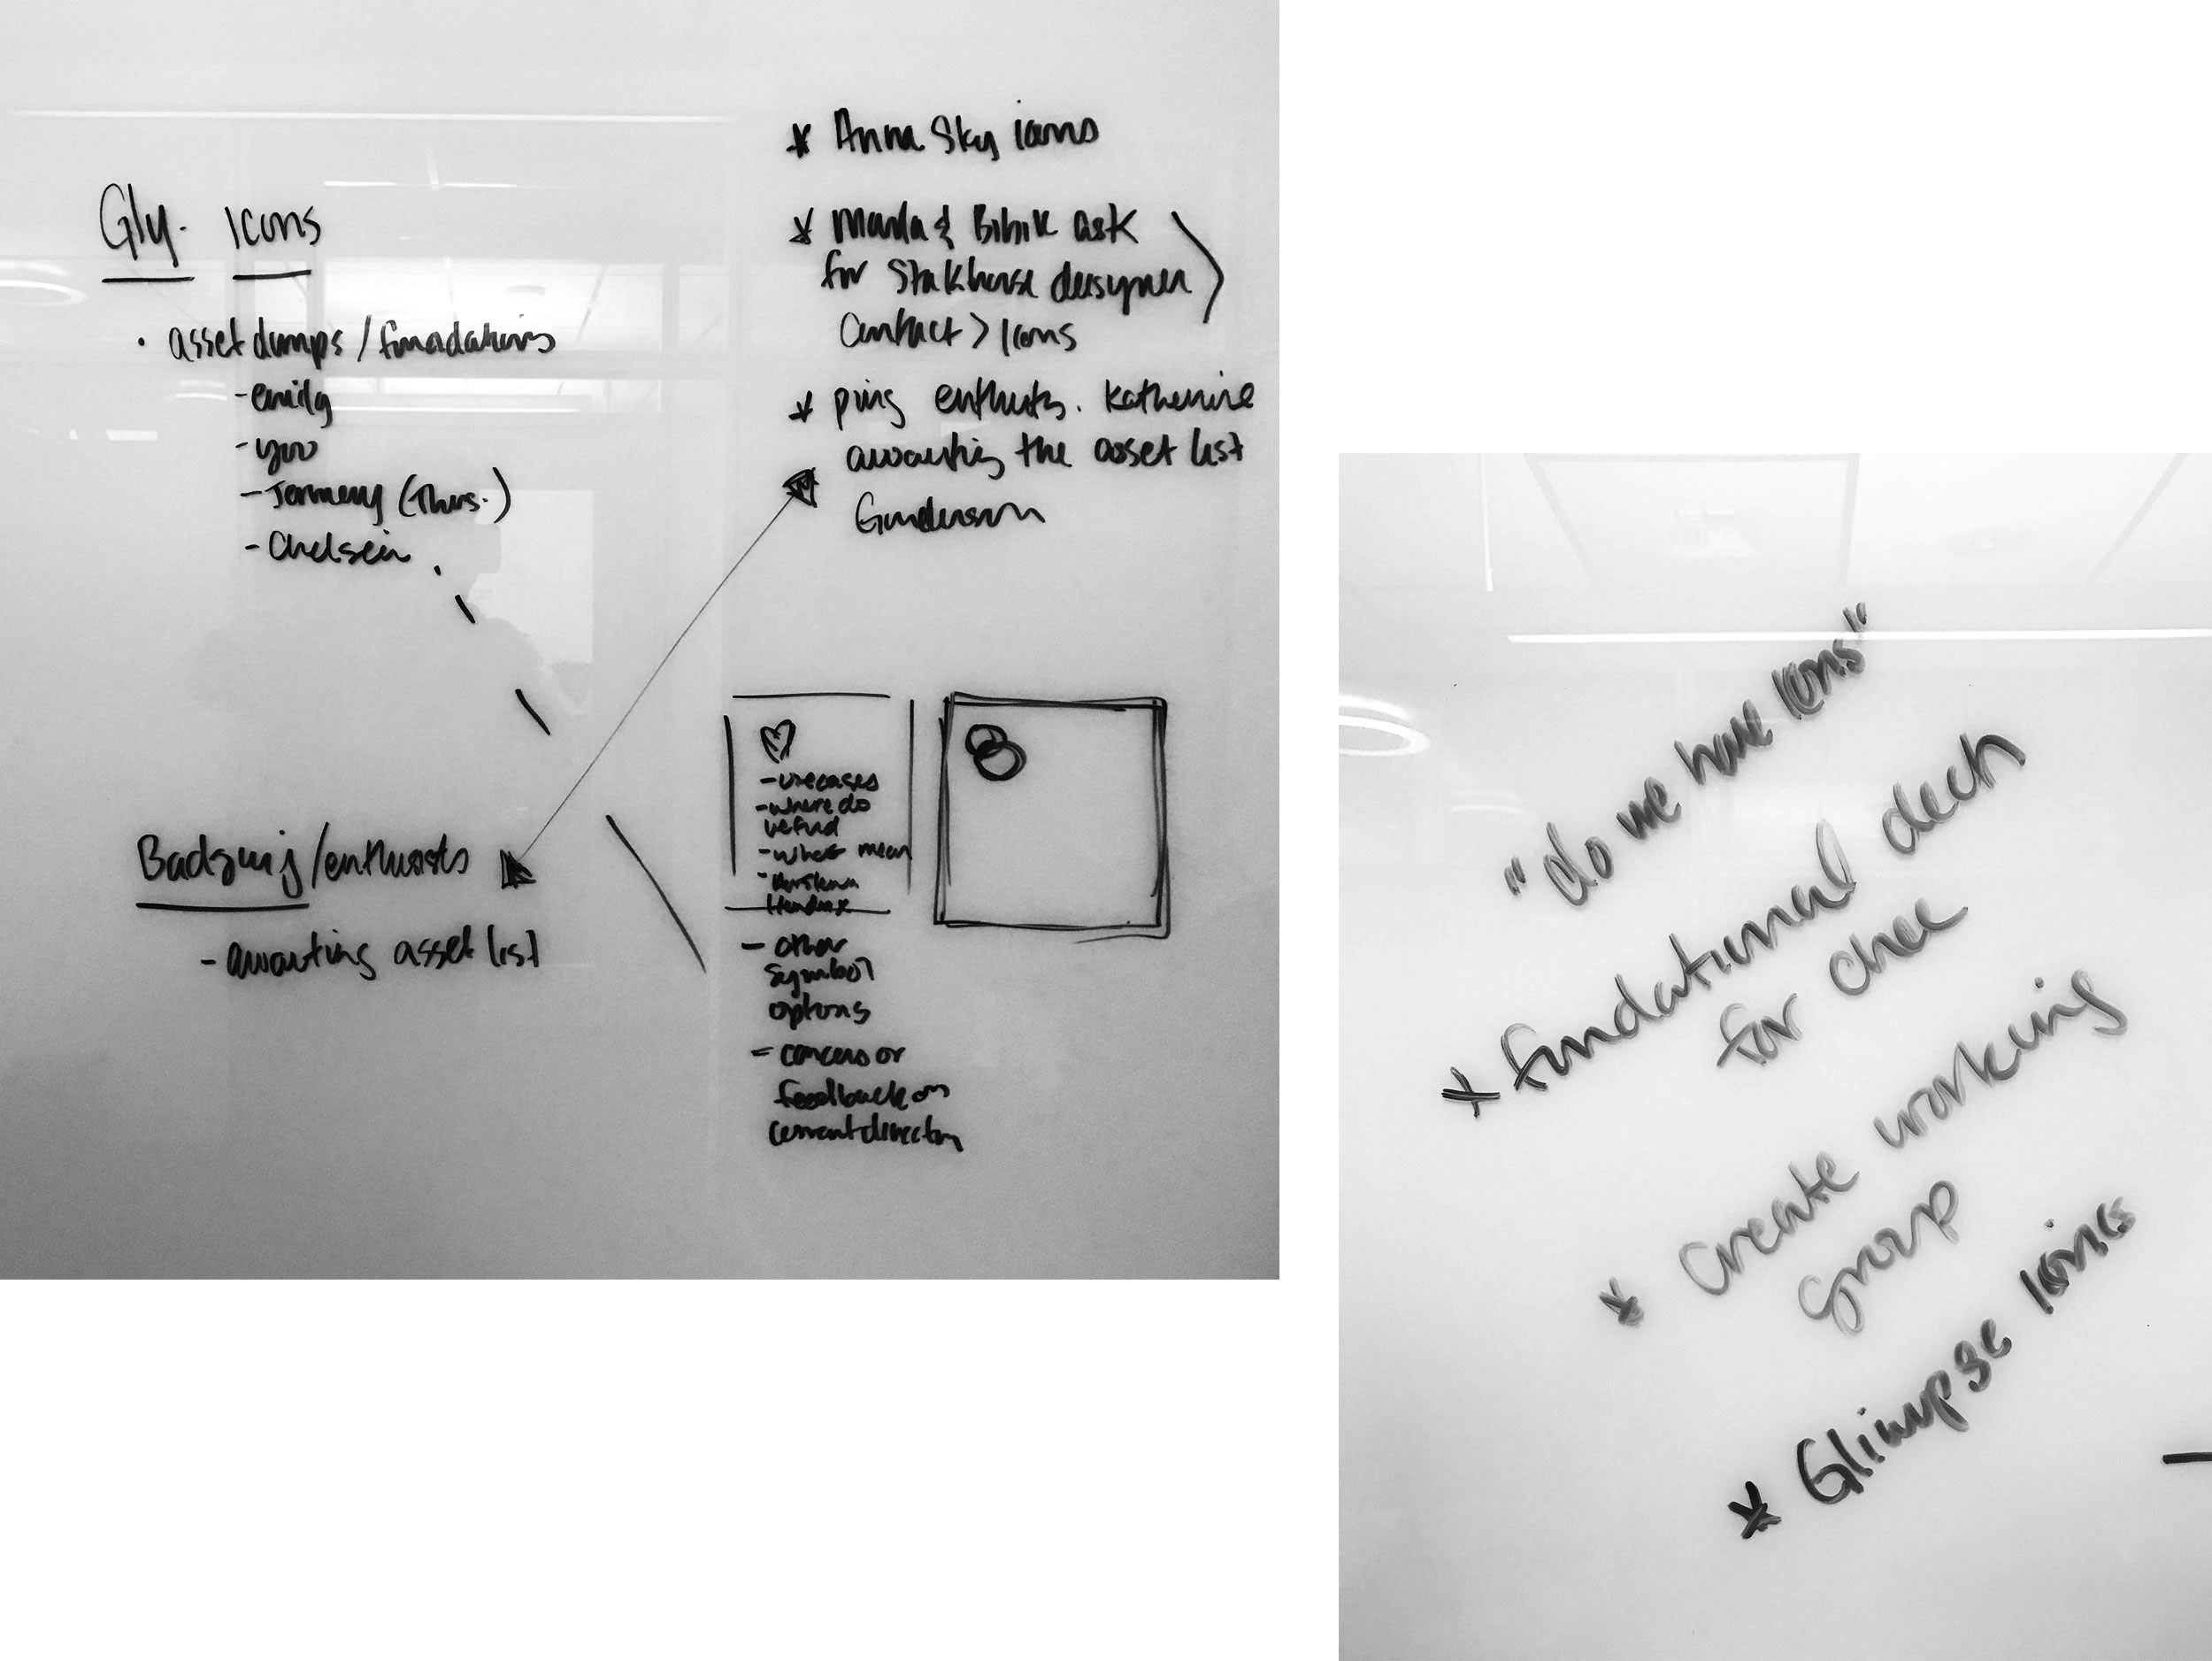 Gly. Icons
• asset dumps / foundations
- emily
- you
- (Thurs.)
- Chelsea
Badging/enthusists
- awaiting asset list
* Anna. Sky icons
* & Bibik ask
for designer
Contact > Icons
* ping Katherine
awaiting the asset list
Gunderson
- usecases
- where do
we find
- what mean
- other
symbol
options
- or
feedback on
current direction
"do we have icons"
* foundational deck
for chee
* Create working
group
* Glimpse icons